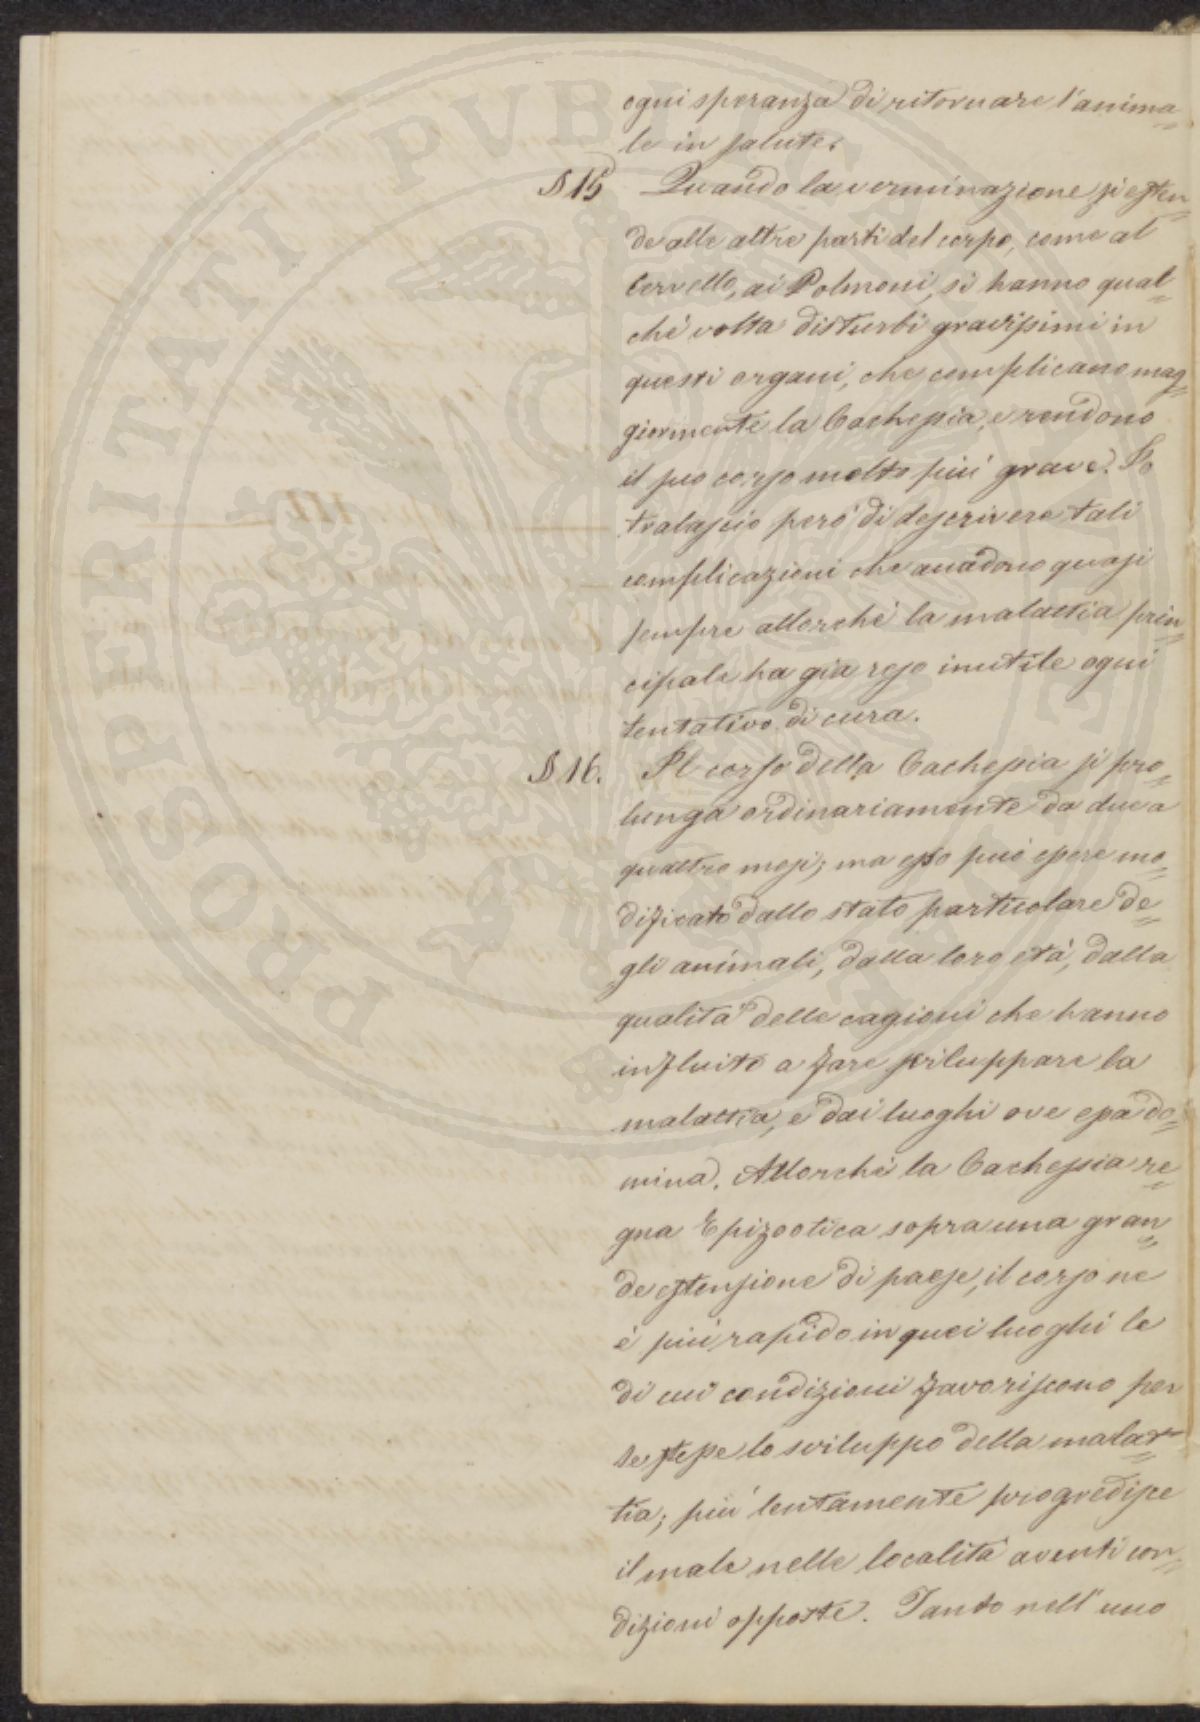 ogni speranza di ritornare l'anima=
le in salute.
§ 15 Quando la verminazione si esten=
de alle altre parti del corpo, come al
Cervello, ai Polmoni, si hanno qual=
che volta disturbi gravissimi in
questi organi, che complicano mag=
giormente la Cachessia, e rendono
il suo corso molto più grave. Io
tralascio però di descrivere tali
complicazioni che accadono quasi
sempre allorchè la malattia prin=
cipale ha già reso inutile ogni
tentativo di cura.
§ 16. Il corso della Cachessia si pro=
lunga ordinariamente da due a
quattro mesi; ma esso può essere mo=
dificato dallo stato particolare de=
gli animali, dalla loro età, dalla
qualità delle cagioni che hanno
influito a fare sviluppare la
malattia, e dai luoghi ove essa do=
mina. Allorchè la Cachessia re=
gna Epizootica sopra una gran=
de estensione di paese, il corso ne
è più rapido in quei luoghi le
di cui condizioni favoriscono per
se stesse lo sviluppo della malat=
tia; più lentamente progredisce
il male nelle località aventi con=
dizioni opposte. Tanto nell'uno
PROSPERITATI PUBLICAE